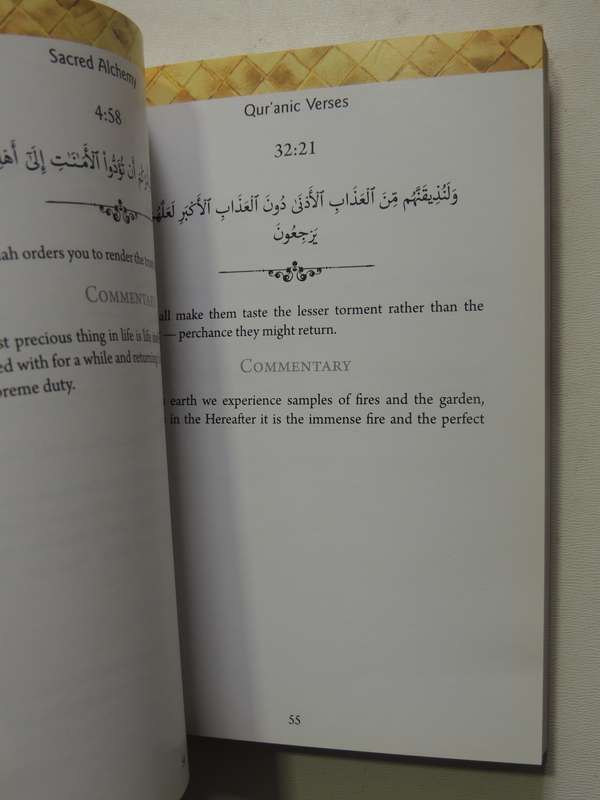 Sacred Alchemy
4:58
أَن تُؤَدُّوا۟ ٱلْأَمَـٰنَـٰتِ إِلَىٰٓ
orders you to render the
COMMENTARY
precious thing in life is life
with for a while and returning
duty.
Qur'anic Verses
32:21
وَلَنُذِيقَنَّهُم مِّنَ ٱلْعَذَابِ ٱلْأَدْنَىٰ دُونَ ٱلْعَذَابِ ٱلْأَكْبَرِ لَعَلَّهُمْ
يَرْجِعُونَ
make them taste the lesser torment rather than the
— perchance they might return.
COMMENTARY
earth we experience samples of fires and the garden,
in the Hereafter it is the immense fire and the perfect
55